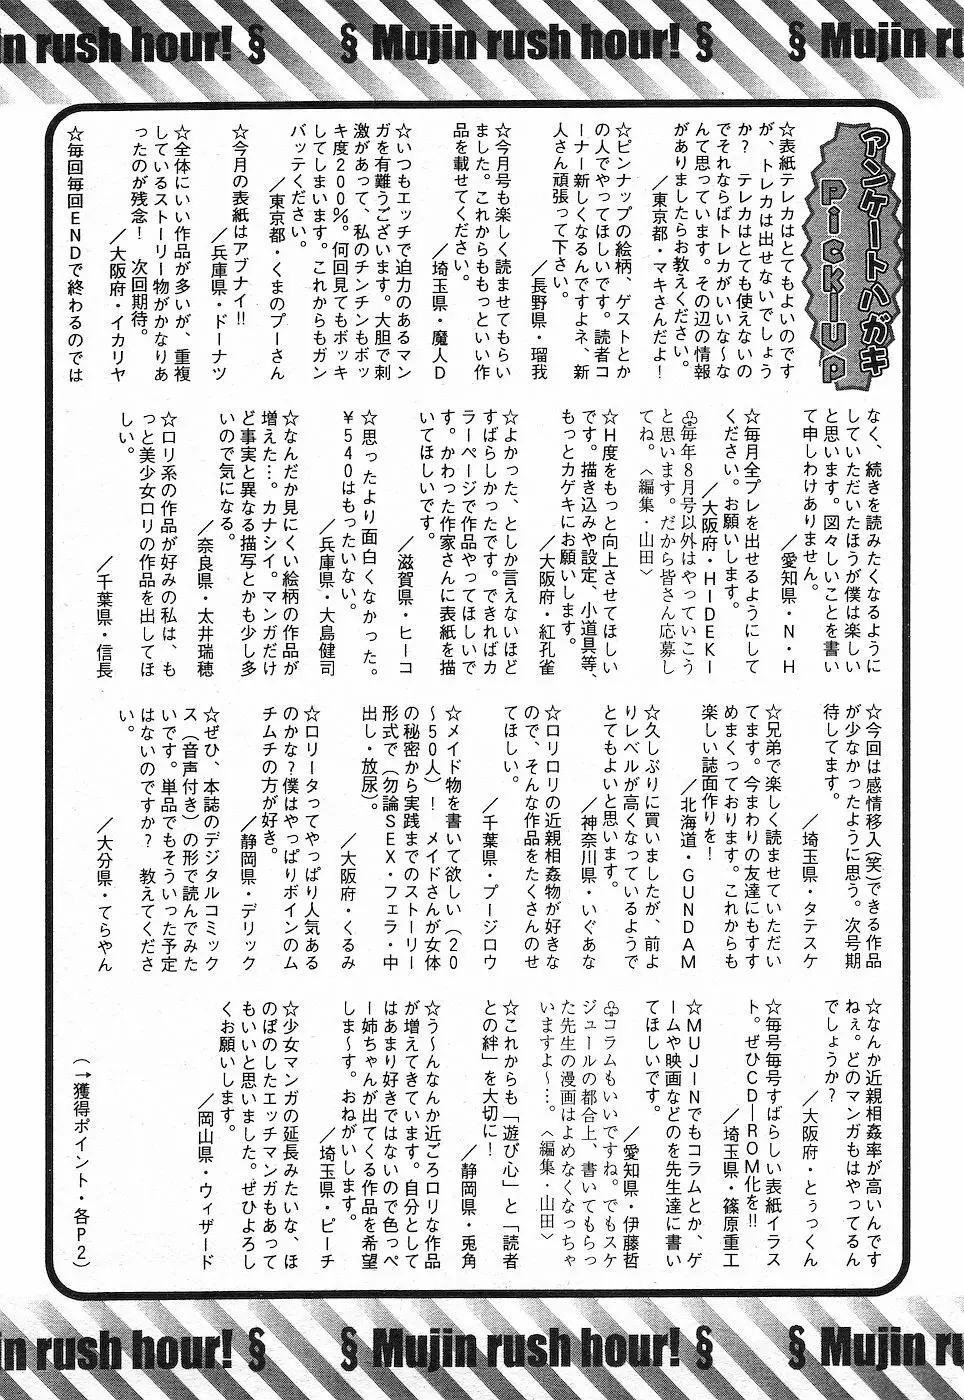 in rush hour! §
§ Mujin rush hour! §
§ Mujin ru
アンケートハガキ
PiCK-UP
☆表紙テレカはとてもよいのです
が、トレカは出せないでしょう
か？　テレカはとても使えないの
でそれならばトレカがいいな～な
んて思っています。その辺の情報
がありましたらお教えください。
／東京都・マキさんだよ！
☆ピンナップの絵柄、ゲストとか
の人でやってほしいです。読者コ
ーナー新しくなるんですよネ、新
人さん頑張って下さい。
／長野県・瑠我
☆今月号も楽しく読ませてもらい
ました。これからももっといい作
品を載せてください。
／埼玉県・魔人D
☆いつもエッチで迫力のあるマン
ガを有難うございます。大胆で刺
激があって、私のチンチンもボッ
キ度200％。何回見てもボッキ
してしまいます。これからもガン
バッテください。
／東京都・くまのプーさん
☆今月の表紙はアブナイ!!
／兵庫県・ドーナツ
☆全体にいい作品が多いが、重複
しているストーリー物がかなりあ
ったのが残念！　次回期待。
／大阪府・イカリヤ
☆毎回毎回ENDで終わるのでは
なく、続きを読みたくなるように
していただいたほうが僕は楽しい
と思います。図々しいことを書い
て申しわけありません。
／愛知県・N・H
☆毎月全プレを出せるようにして
ください。お願いします。
／大阪府・HIDEKI
♧毎年8月号以外はやっていこう
と思います。だから皆さん応募し
てね。〈編集・山田〉
☆H度をもっと向上させてほしい
です。描き込みや設定、小道具等、
もっとカゲキにお願いします。
／大阪府・紅孔雀
☆よかった、としか言えないほど
すばらしかったです。できればカ
ラーページで作品やってほしいで
す。かわった作家さんに表紙を描
いてほしいです。
／滋賀県・ヒーコ
☆思ったより面白くなかった。
￥540はもったいない。
／兵庫県・大島健司
☆なんだか見にくい絵柄の作品が
増えた…。カナシイ。マンガだけ
ど事実と異なる描写とかも少し多
いので気になる。
／奈良県・太井瑞穂
☆ロリ系の作品が好みの私は、も
っと美少女ロリの作品を出してほ
しい。
／千葉県・信長
☆今回は感情移入（笑）できる作品
が少なかったように思う。次号期
待してます。
／埼玉県・タテスケ
☆兄弟で楽しく読ませていただい
てます。今まわりの友達にもすす
めまくっております。これからも
楽しい誌面作りを！
／北海道・GUNDAM
☆久しぶりに買いましたが、前よ
りレベルが高くなっているようで
とてもよいと思います。
／神奈川県・いぐあな
☆ロリロリの近親相姦物が好きな
ので、そんな作品をたくさんのせ
てほしい。
／千葉県・プージロウ
☆メイド物を書いて欲しい（20
～50人）！　メイドさんが女体
の秘密から実践までのストーリー
形式で（勿論SEX・フェラ・中
出し・放尿）。
／大阪府・くるみ
☆ロリータってやっぱり人気ある
のかな？僕はやっぱりボインのム
チムチの方が好き。
／静岡県・デリック
☆ぜひ、本誌のデジタルコミック
ス（音声付き）の形で読んでみた
いです。単品でもそういった予定
はないのですか？　教えてくださ
い。
／大分県・てらやん
☆なんか近親相姦率が高いんです
ねぇ。どのマンガもはやってるん
でしょうか？
／大阪府・とぅっくん
☆毎号毎号すばらしい表紙イラス
ト。ぜひCD－ROM化を!!
／埼玉県・篠原重工
☆MUJINでもコラムとか、ゲ
ームや映画などのを先生達に書い
てほしいです。
／愛知県・伊藤哲
♧コラムもいいですね。でもスケ
ジュールの都合上、書いてもらっ
た先生の漫画はよめなくなっちゃ
いますよ～…。〈編集・山田〉
☆これからも「遊び心」と「読者
との絆」を大切に！
／静岡県・兎角
☆う～んなんか近ごろロリな作品
が増えてきています。自分として
はあまり好きではないので色っぺ
ー姉ちゃんが出てくる作品を希望
しま～す。おねがいします。
／埼玉県・ピーチ
☆少女マンガの延長みたいな、ほ
のぼのしたエッチマンガもあって
もいいと思いました。ぜひよろし
くお願いします。
／岡山県・ウィザード
（→獲得ポイント・各P2）
in rush hour! §
§ Mujin rush hour! §
§ Mujin ru